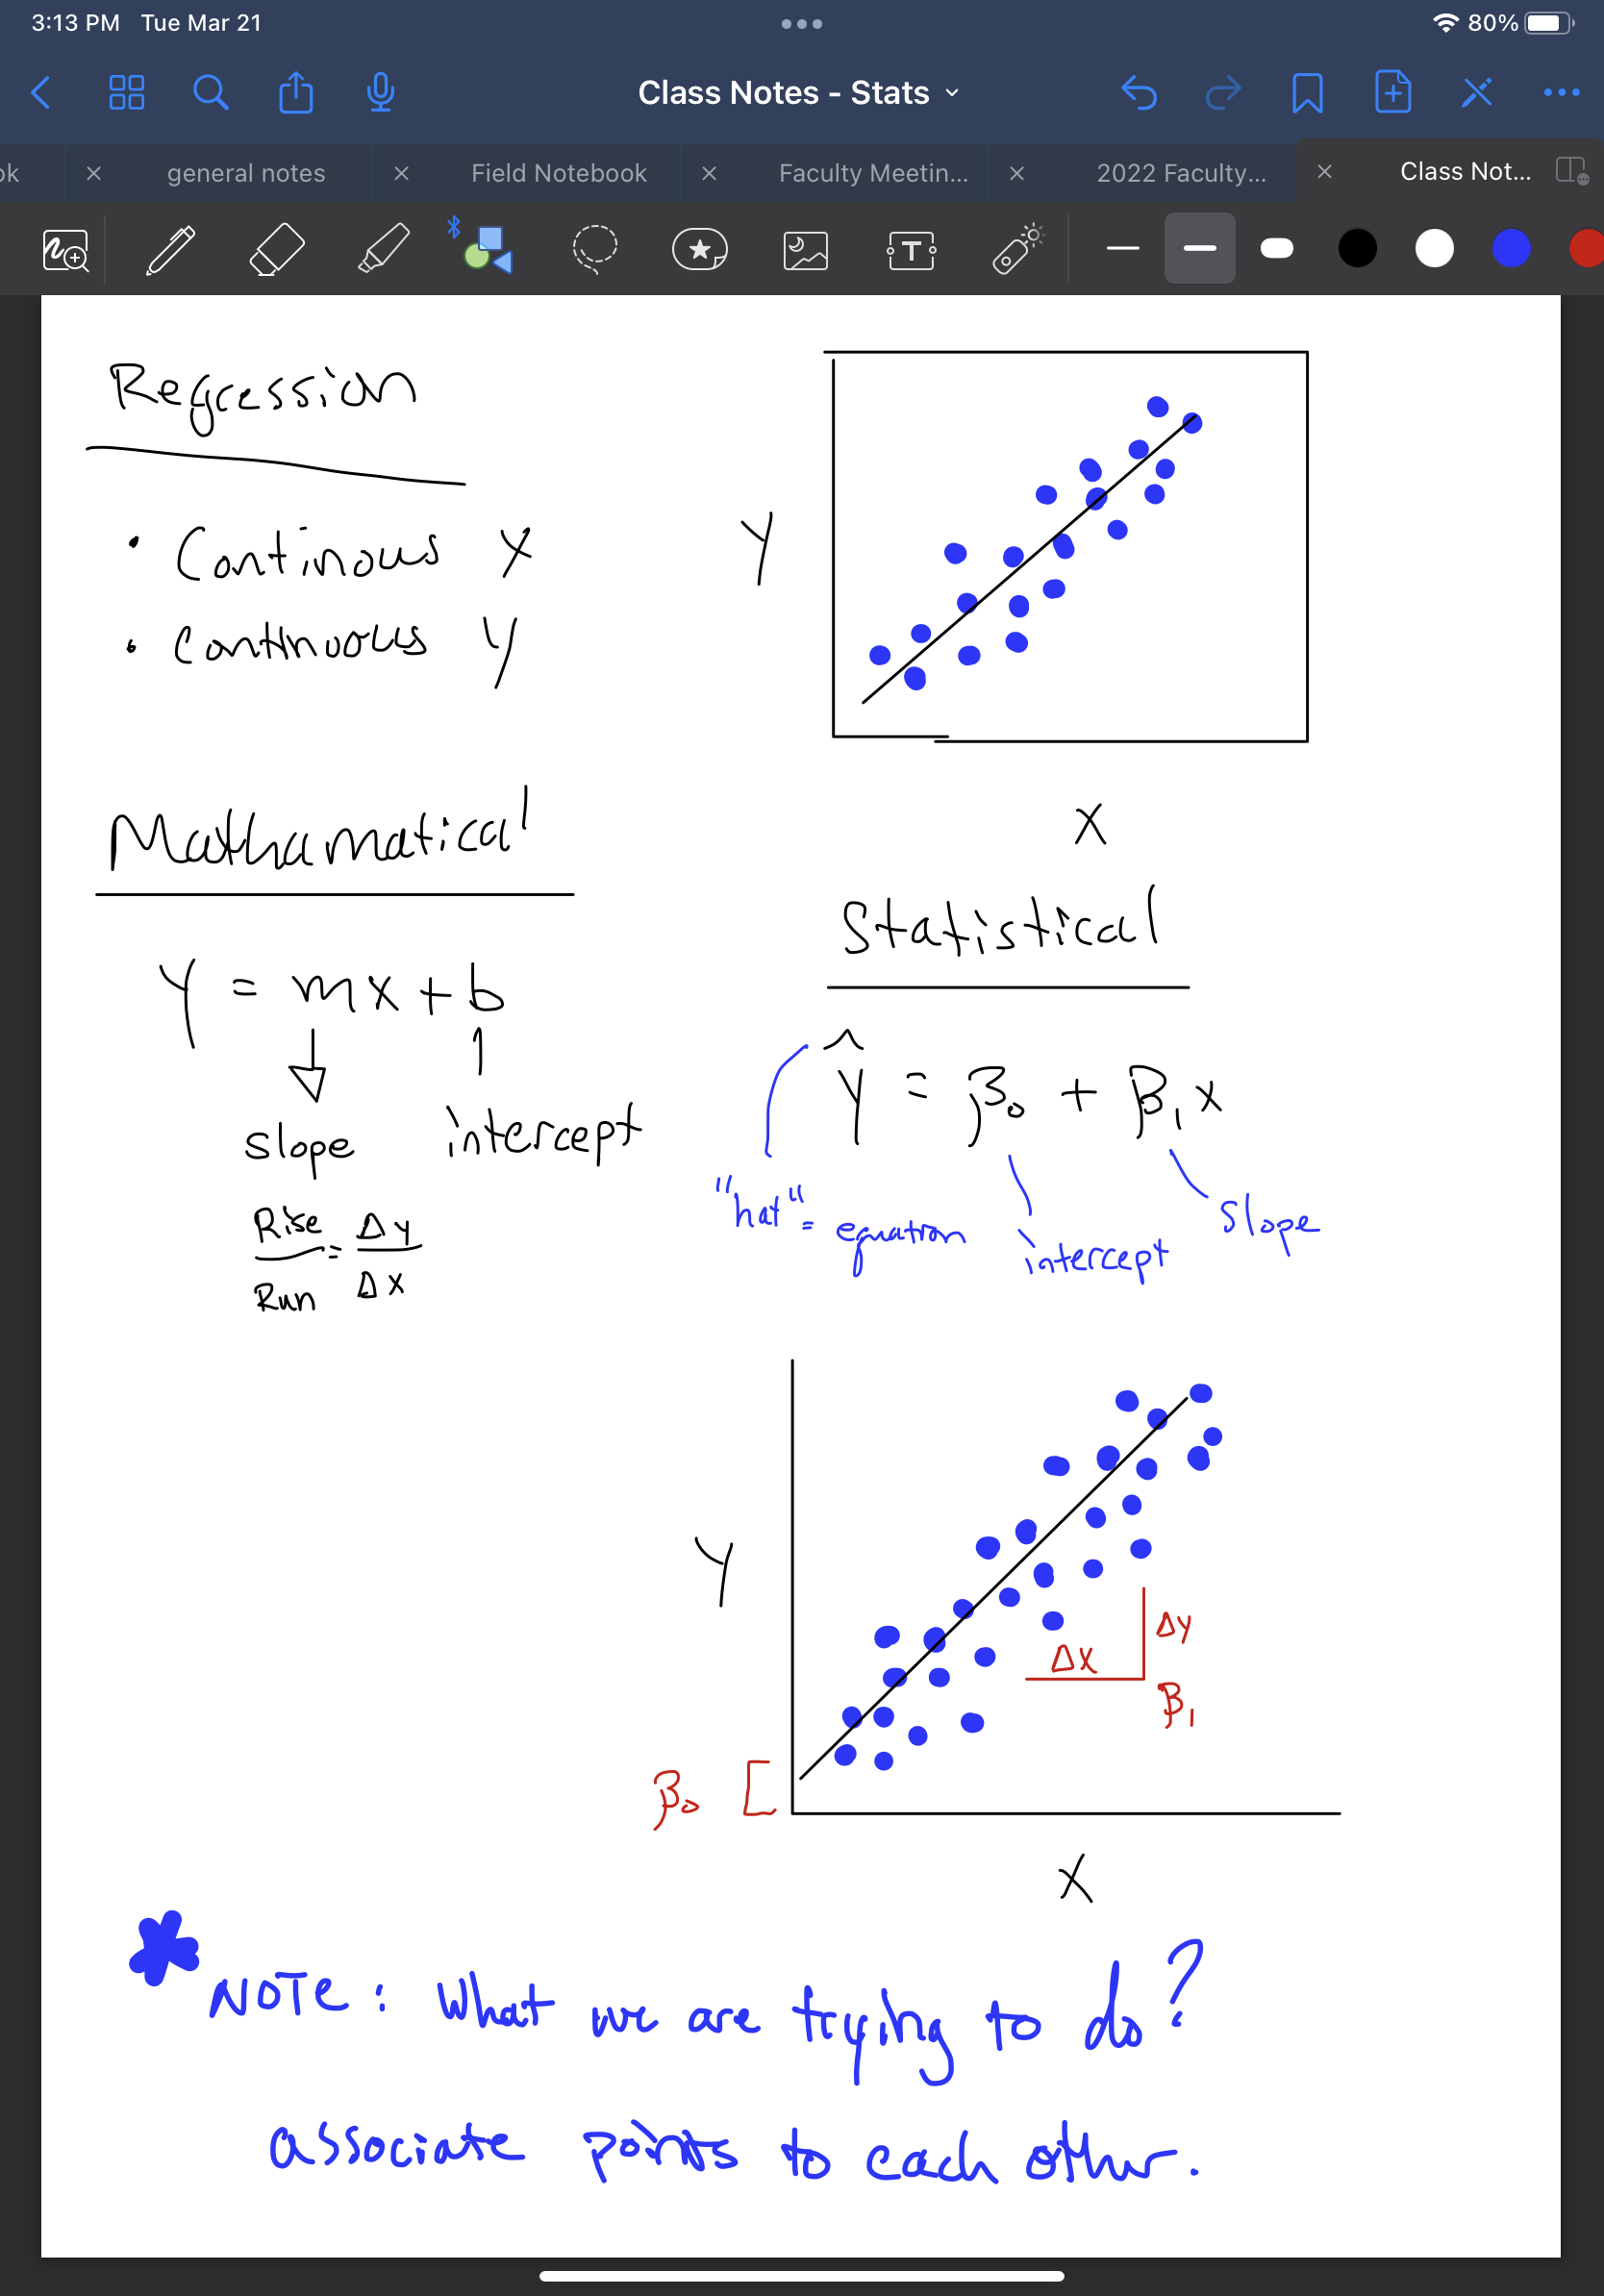 3:13 PM Tue Mar 21
80%
Class Notes - Stats
ok
general notes
Field Notebook
Faculty Meetin...
2022 Faculty...
Class Not...
T
Regression
• Continous X
• Continuous Y
Y
X
Mathamatical
Y = mx + b
slope intercept
Rise = Δy
Run Δx
Statistical
Ŷ = β₀ + β₁x
"hat" = equation
intercept
slope
Y
Δx
Δy
β₁
β₀
X
* NOTE: What we are trying to do?
associate points to each other.